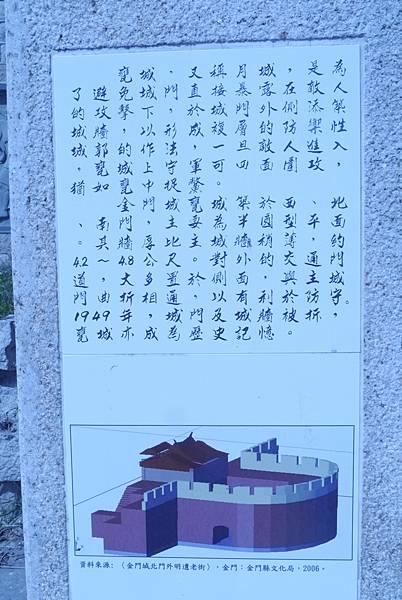 為人築性入， 北面的門城守，
是敵添禦進攻 、平，通主防拆
，在側防人圍 面型薄交與於被。
城露外的敵面 於圓稍的，利牆憶
月暴門層且四 築半牆外面有城記
稱接城複一可。城為城對側以及史
又直於成，軍鱉甕要主。於，門歷
，門，形法守捉城主比尺置通城為
城城下以作上中門，厚公多相，成
甕免擊，的城甕金門牆4.8大折年亦
避攻牆郭甕如 南其～，曲49城
了的城城，猶 、。4.2道門19甕
資料來源：〈金門城北門外明遺老街〉，金門：金門縣文化局，2006。